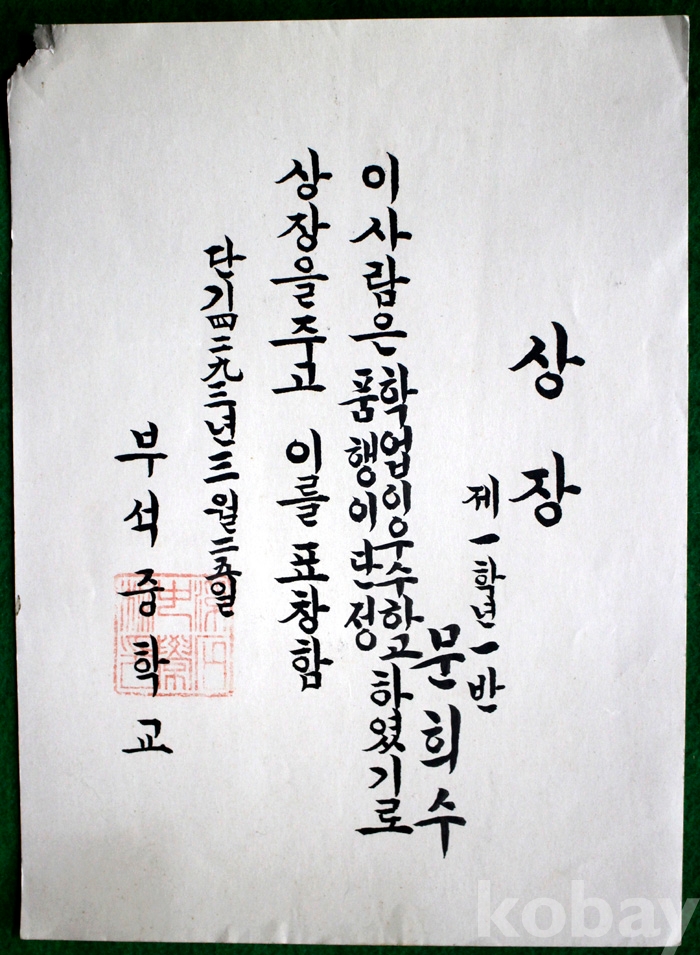 상장
제一학년一반
문희수
이사람은 학업이우수하고
품행이단정
하였기로
상장을주고 이를표창함
단기四二九三년三월二五일
부석중학교
kobay